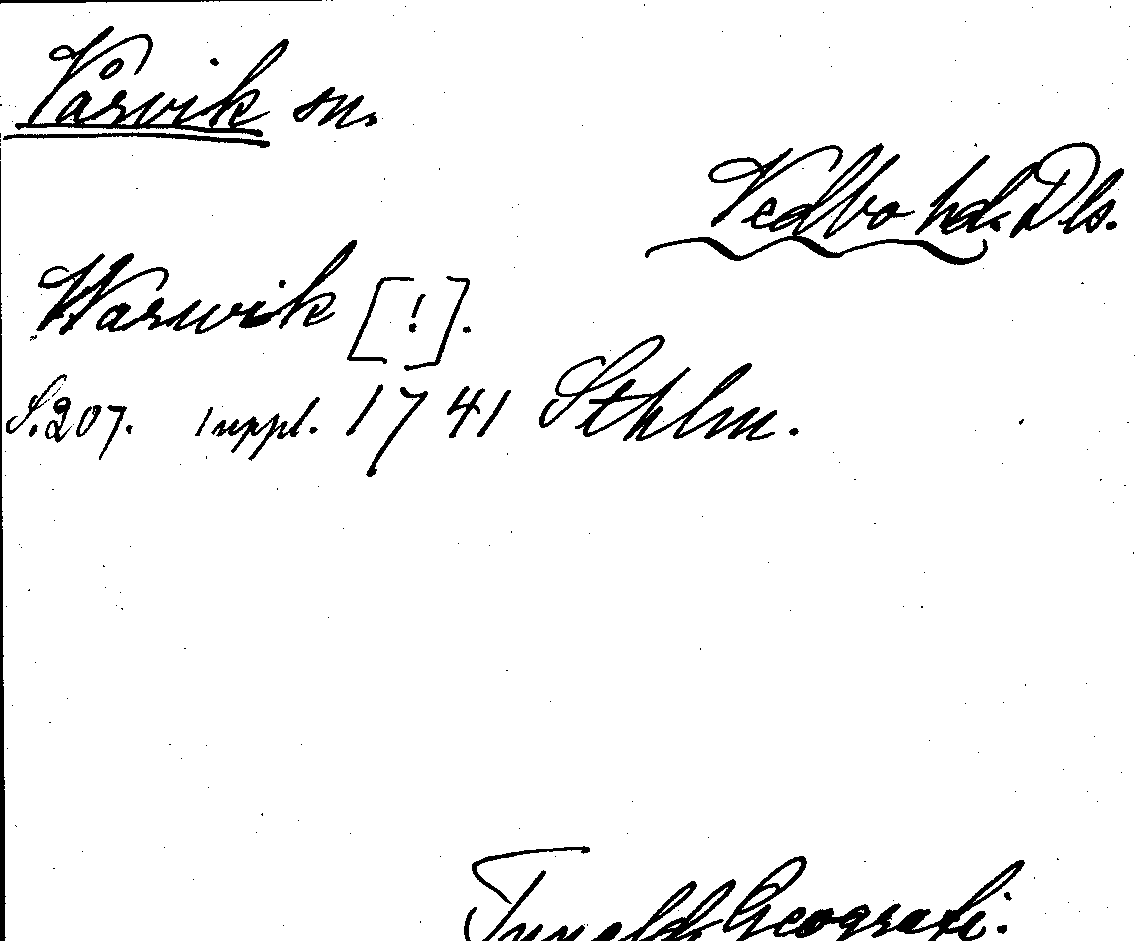 Vårvik sn.
Vedbo hd. Dls.
Warwik [!].
S. 207. 1 uppl. 1741 Sthlm.
Tunelds Geografi.